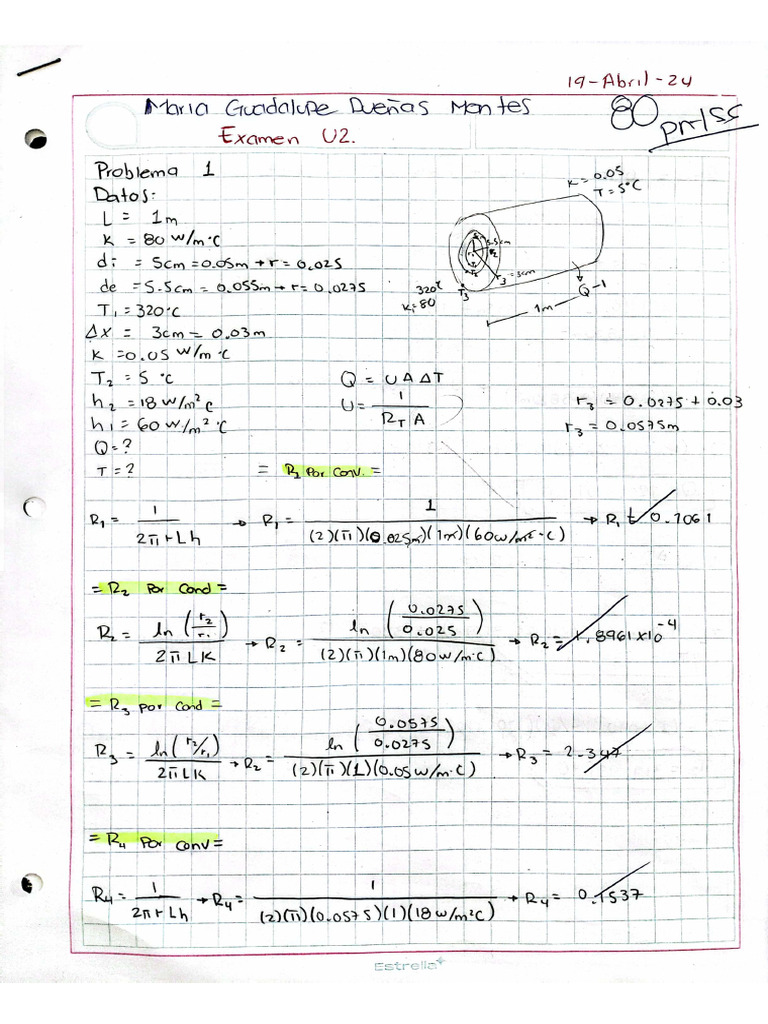 19-Abril-24
Maria Guadalupe Dueñas Montes
80
Examen U2.
Problema 1
Datos:
L = 1m
K = 80 W/m·°C
di = 5cm = 0.05m → r = 0.025
de = 5.5cm = 0.055m → r = 0.0275
T₁ = 320°C
Δx = 3cm = 0.03m
K = 0.05 W/m·°C
T₂ = 5 °C
h₂ = 18 W/m²°C
h₁ = 60 W/m²·°C
Q = ?
T = ?
K = 0.05
T = 5°C
5.5cm
r₃ = 3cm
T₃
320°C
K = 80
1m
Q-1
Q = U A ΔT
U = 1 / R_T A
r₃ = 0.0275 + 0.03
r₃ = 0.0575m
= R₁ Por Conv. =
R₁ = 1 / 2πrLh → R₁ = 1 / (2)(π)(0.025m)(1m)(60W/m²·°C) → R₁ = 0.1061
= R₂ Por Cond =
R₂ = ln(r₂/r₁) / 2πLK → R₂ = ln(0.0275/0.025) / (2)(π)(1m)(80W/m·°C) → R₂ = 1.8961x10⁻⁴
= R₃ Por Cond =
R₃ = ln(r₂/r₁) / 2πLK → R₂ = ln(0.0575/0.0275) / (2)(π)(1)(0.05W/m·°C) → R₃ = 2.347
= R₄ Por Conv =
R₄ = 1 / 2πrLh → R₄ = 1 / (2)(π)(0.0575)(1)(18W/m²°C) → R₄ = 0.1537
Estrella